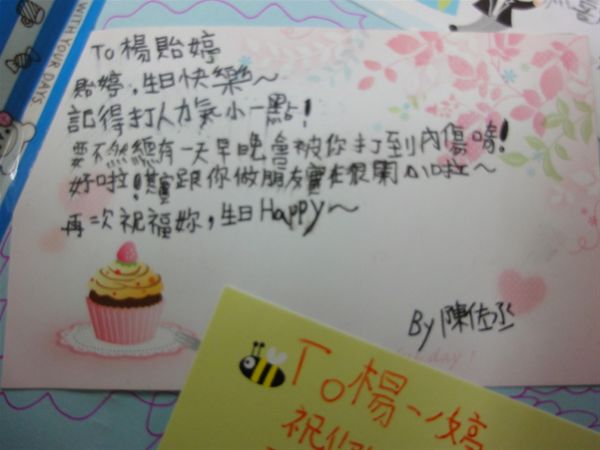 WITH YOUR DAYS
To 楊貽婷
貽婷,生日快樂~
記得打人力氣小一點!
要不然總有一天早晚會被你打到內傷唷!
好啦!其實跟你做朋友實在很開心啦~
再次祝福妳,生日Happy~
By 陳佐丞
day!
To 楊ㄧ婷
祝你